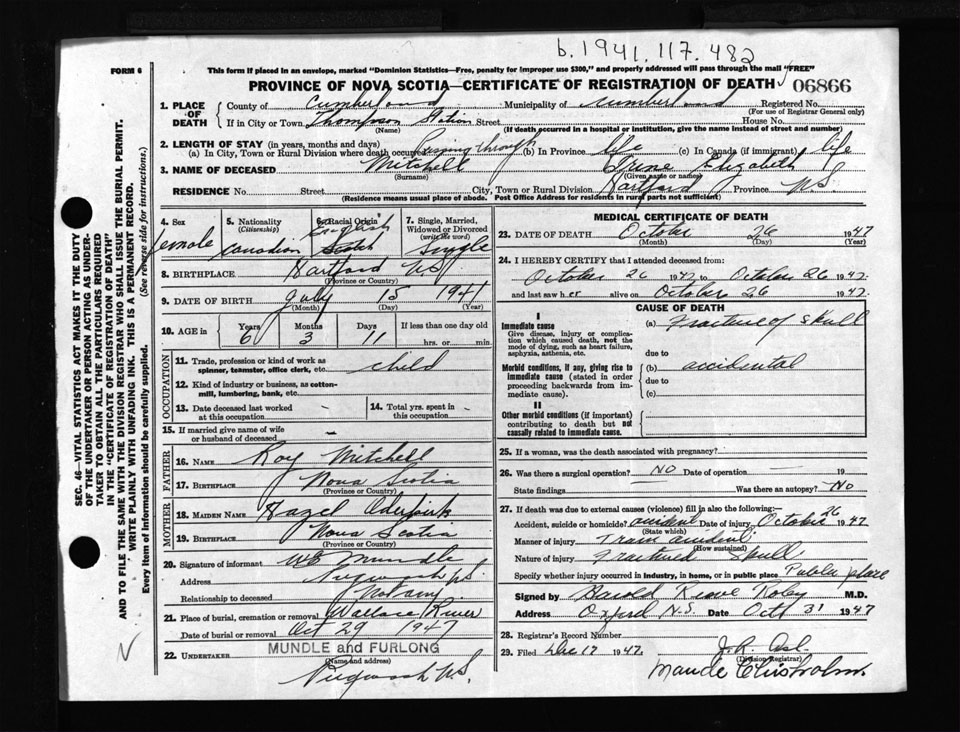 b. 1941. 117. 482
FORM 6
This form if placed in an envelope, marked "Dominion Statistics—Free, penalty for improper use $300," and properly addressed will pass through the mail "FREE"
PROVINCE OF NOVA SCOTIA—CERTIFICATE OF REGISTRATION OF DEATH 06866
1. PLACE OF DEATH
County of Cumberland Municipality of Cumberland Registered No.
(For use of Registrar General only)
If in City or Town Thompson Station Street House No.
(Name) (If death occurred in a hospital or institution, give the name instead of street and number)
2. LENGTH OF STAY (in years, months and days)
(a) In City, Town or Rural Division where death occurred Passing through (b) In Province life (c) In Canada (if immigrant) life
3. NAME OF DECEASED Mitchell June Elizabeth
(Surname) (Given name or names)
RESIDENCE No. Street City, Town or Rural Division Hartford Province N.S.
(Residence means usual place of abode. Post Office Address for residents in rural parts not sufficient)
4. Sex female
5. Nationality (Citizenship) Canadian
6. Racial Origin English Scotch
7. Single, Married, Widowed or Divorced (write the word) Single
8. BIRTHPLACE Hartford N.S.
(Province or Country)
9. DATE OF BIRTH July 15 1941
(Month) (Day) (Year)
10. AGE in Years 6 Months 3 Days 11 If less than one day old hrs. or min.
OCCUPATION
11. Trade, profession or kind of work as spinner, teamster, office clerk, etc. child
12. Kind of industry or business, as cotton-mill, lumbering, bank, etc.
13. Date deceased last worked at this occupation –
14. Total yrs. spent in this occupation –
15. If married give name of wife or husband of deceased –
FATHER
16. NAME Roy Mitchell
17. BIRTHPLACE Nova Scotia
(Province or Country)
MOTHER
18. MAIDEN NAME Hazel
19. BIRTHPLACE Nova Scotia
(Province or Country)
20. Signature of informant Mundle
Address Pugwash N.S.
Relationship to deceased Not any
21. Place of burial, cremation or removal Wallace River
Date of burial or removal Oct 29 1947
22. UNDERTAKER MUNDLE and FURLONG
(Name and address)
Pugwash N.S.
MEDICAL CERTIFICATE OF DEATH
23. DATE OF DEATH October 26 1947
(Month) (Day) (Year)
24. I HEREBY CERTIFY that I attended deceased from:
October 26 1947 to October 26 1947
and last saw her alive on October 26 1947.
CAUSE OF DEATH
I
Immediate cause
Give disease, injury or complication which caused death, not the mode of dying, such as heart failure, asphyxia, asthenia, etc.
(a) Fracture of Skull
due to
Morbid conditions, if any, giving rise to immediate cause (stated in order proceeding backwards from immediate cause).
(b) accidental
due to
(c)
II
Other morbid conditions (if important) contributing to death but not causally related to immediate cause.
25. If a woman, was the death associated with pregnancy?
26. Was there a surgical operation? No Date of operation — 19
State findings Was there an autopsy? No
27. If death was due to external causes (violence) fill in also the following:—
Accident, suicide or homicide? accident Date of injury October 26 1947
(State which)
Manner of injury Train accident
(How sustained)
Nature of injury Fractured Skull
Specify whether injury occurred in industry, in home, or in public place Public place
Signed by Harold M.D.
Address Oxford N.S. Date Oct 31 1947
28. Registrar's Record Number
29. Filed Dec 17 1947. J. R.
(Division Registrar)
Maude Chisholm.
SEC. 46—VITAL STATISTICS ACT MAKES IT THE DUTY OF THE UNDERTAKER OR PERSON ACTING AS UNDERTAKER TO OBTAIN ALL THE PARTICULARS REQUIRED IN THE "CERTIFICATE OF REGISTRATION OF DEATH" AND TO FILE THE SAME WITH THE DIVISION REGISTRAR WHO SHALL ISSUE THE BURIAL PERMIT.
WRITE PLAINLY WITH UNFADING INK. THIS IS A PERMANENT RECORD.
Every item of Information should be carefully supplied. (See reverse side for instructions.)